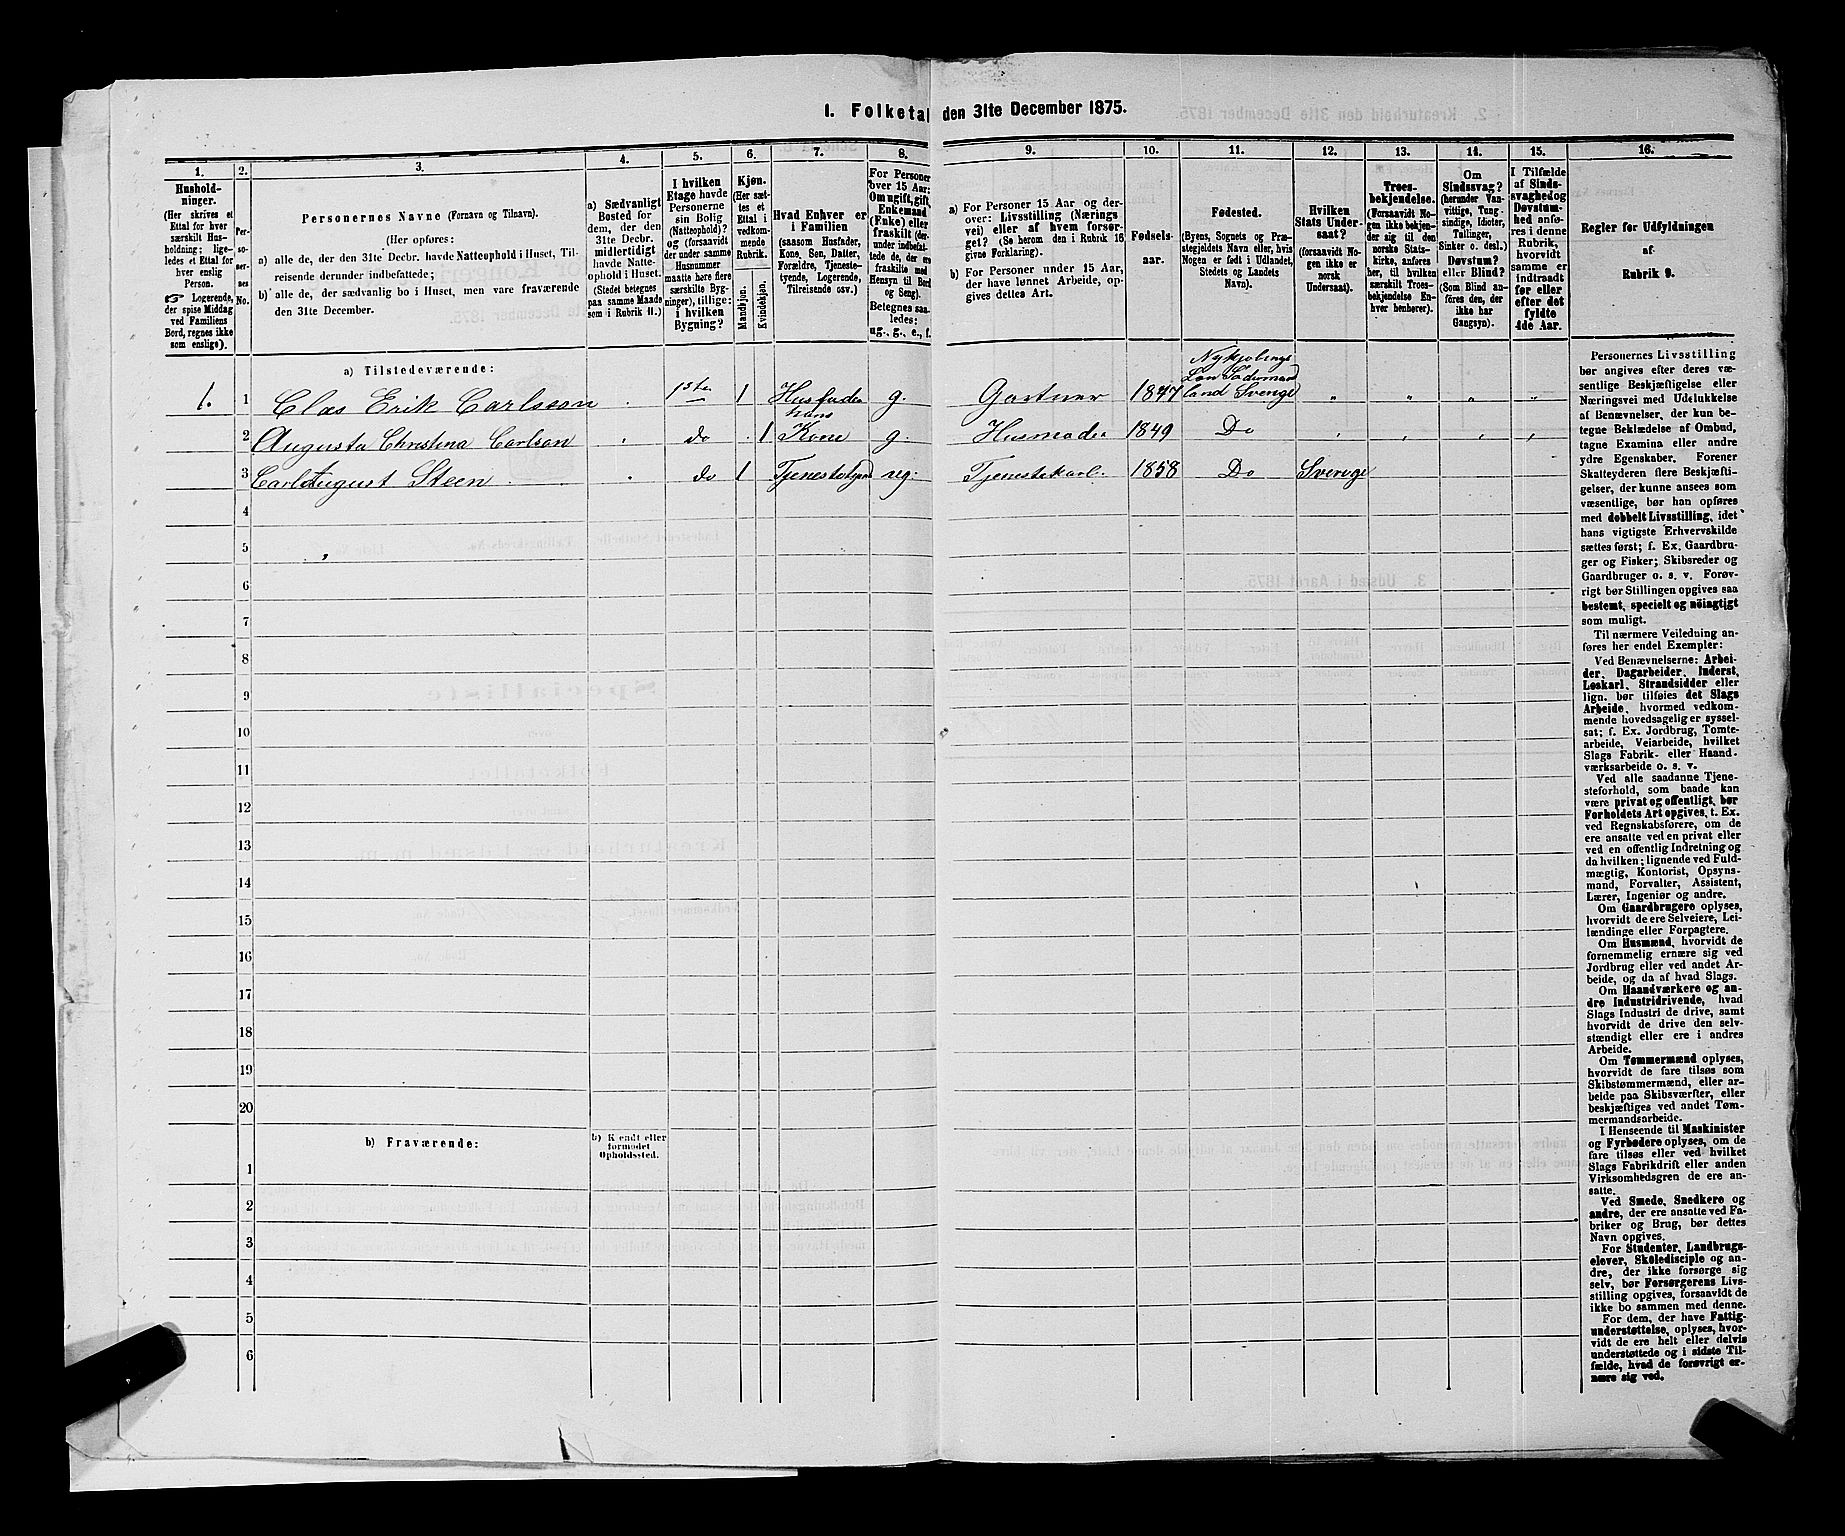 1. Folketal den 31te December 1875.
1.
Hushold-
ninger.
(Her skrives et
Ettal for hver
særskilt Hus-
holdning; lige-
ledes et Ettal for
hver enslig
Person.
☞ Logerende,
der spise Middag
ved Familiens
Bord, regnes ikke
som enslige).
2.
Per-
so-
ner-
nes
No.
3.
Personernes Navne (Fornavn og Tilnavn).
(Her opføres:
a) alle de, der den 31te Decbr. havde Natteophold i Huset, Til-
reisende derunder indbefattede;
b) alle de, der sædvanlig bo i Huset, men vare fraværende
den 31te December.
4.
a) Sædvanligt
Bosted for
dem, der den
31te Decbr.
midlertidigt
havde Natte-
ophold i Huset.
(Stedet betegnes
paa samme Maade
som i Rubrik 11.)
5.
I hvilken
Etage havde
Personerne
sin Bolig
(Natteophold)?
og (forsaavidt
der under samme
Husnummer
maatte høre flere
særskilte Byg-
ninger), tillige:
i hvilken
Bygning?
6.
Kjøn.
(Her sæt-
tes et
Ettal i
vedkom-
mende
Rubrik.
Mandkjøn.
Kvindekjøn.
7.
Hvad Enhver er
i Familien
(saasom Husfader,
Kone, Søn, Datter,
Forældre, Tjeneste-
tyende, Logerende,
Tilreisende osv.)
8.
For Personer
over 15 Aar:
Om ugift, gift,
Enkemand
(Enke) eller
fraskilt (der-
under indbefat-
tede de, der ere
fraskilte med
Hensyn til Bord
og Seng).
Betegnes saa-
ledes:
ug., g., e., f.
9.
a) For Personer 15 Aar og der-
over: Livsstilling (Nærings
vei) eller af hvem forsør-
get? (Se herom den i Rubrik 16
givne Forklaring).
b) For Personer under 15 Aar,
der have lønnet Arbeide, op-
gives dettes Art.
10.
Fødsels-
aar.
11.
Fødested.
(Byens, Sognets og Præ-
stegjeldets Navn eller, hvis
Nogen er født i Udlandet,
Stedets og Landets
Navn).
12.
Hvilken
Stats Under-
saat?
(forsaavidt No-
gen ikke er
norsk
Undersaat).
13.
Troes-
bekjendelse.
(Forsaavidt No-
gen ikke bekjen-
der sig til den
norske Stats-
kirke, anføres
her, til hvilken
særskilt Troes-
bekjendelse En-
hver henhører).
14.
Om
Sindssvag?
(herunder Van-
vittige, Tung-
sindige, Idioter,
Tullinger,
Sinker o. desl.)
Døvstum?
eller Blind?
(Som Blind an-
føres den, der
ikke har
Gangsyn).
15.
I Tilfælde
af Sinds-
svaghed og
Døvstum-
hed anfø-
res i denne
Rubrik,
hvorvidt
samme er
indtraadt
før eller
efter det
fyldte
4de Aar.
16.
Regler for Udfyldningen
af
Rubrik 9.
a) Tilstedeværende:
1. 1 Clas Erik Carlsson 1ste 1 Husfader g. Gartner 1847 Nykjobings Lan Södermand land Sverige " " " "
2 Augusta Christina Carlson do 1 hans Kone g. Husmoder 1849 Do
3 Carl August Steen do 1 Tjenestetyend ug. Tjenestekarl 1858 Do Sverige
4
5
6
7
8
9
10
11
12
13
14
15
16
17
18
19
20
b) Fraværende:
b) Kjendt eller
formodet
Opholdssted.
1
2
3
4
5
6
Personernes Livsstilling
bør angives efter deres væ-
sentlige Beskjæftigelse eller
Næringsvei med Udelukkelse
af Benævnelser, der kun be-
tegne Beklædelse af Ombud,
tagne Examina eller andre
ydre Egenskaber. Forener
Skatteyderen flere Beskjæfti-
gelser, der kunne ansees som
væsentlige, bør han opføres
med dobbelt Livsstilling, idet
hans vigtigste Erhvervskilde
sættes først; f. Ex. Gaardbru-
ger og Fisker; Skibsreder og
Gaardbruger o. s. v. Forøv-
rigt bør Stillingen opgives saa
bestemt, specielt og nöiagtigt
som muligt.
Til nærmere Veiledning an-
føres her endel Exempler:
Ved Benævnelserne: Arbei-
der, Dagarbeider, Inderst,
Løskarl, Strandsidder eller
lign. bør tilføies det Slags
Arbeide, hvormed vedkom-
mende hovedsagelig er syssel-
sat; f. Ex. Jordbrug, Tomte-
arbeide, Veiarbeide, hvilket
Slags Fabrik- eller Haand-
værksarbeide o. s. v.
Ved alle saadanne Tjene-
steforhold, som baade kan
være privat og offentligt, bør
Forholdets Art opgives, t. Ex.
ved Regnskabsførere, om de
ere ansatte ved en privat eller
ved en offentlig Indretning og
da hvilken; lignende ved Fuld-
mægtig, Kontorist, Opsyns-
mand, Forvalter, Assistent,
Lærer, Ingeniør og andre.
Om Gaardbrugere oplyses,
hvorvidt de ere Selveiere, Lei-
lændinge eller Forpagtere.
Om Husmænd, hvorvidt de
fornemmelig ernære sig ved
Jordbrug eller ved andet Ar-
beide, og da af hvad Slags.
Om Haandværkere og an-
dre Industridrivende, hvad
Slags Industri de drive, samt
hvorvidt de drive den selv-
stændigt eller ere i andres
Arbeide.
Om Tømmermænd oplyses,
hvorvidt de fare tilsøs som
Skibstømmermænd, eller ar-
beide paa Skibsværfter, eller
beskjæftiges ved andet Tøm-
mermandsarbeide.
I Henseende til Maskinister
og Fyrbødere oplyses, om de
fare tilsøs eller ved hvilket
Slags Fabrikdrift eller anden
Virksomhedsgren de ere an-
satte.
Ved Smede, Snedkere og
andre, der ere ansatte ved Fa-
briker og Brug, bør dettes
Navn opgives.
For Studenter, Landbrugs-
elever, Skoledisciple og an-
dre, der ikke forsørge sig
selv, bør Forsørgerens Livs-
stilling opgives, forsaavidt de
ikke bo sammen med denne.
For dem, der have Fattig-
understøttelse, oplyses, hvor-
vidt de ere helt eller delvis
understøttede og i sidste Til-
fælde, hvad de forøvrigt er-
nære sig ved.